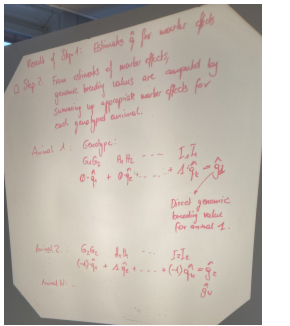 Result of Step 1: Estimates q̂ for marker effects
Step 2: From estimates of marker effects,
genomic breeding values are computed by
summing up appropriate marker effects for
each genotyped animal.
Animal 1: Genotype:
G₁G₂ H₁H₂ ---- I₁I₁
0·q̂₁ + 0·q̂₂ .... + 1·q̂ = ĝ₁
Direct genomic
breeding value
for animal 1.
Animal 2 .. G₂G₂ H₁H₁ ... I₂I₂
(-1)q̂₁ + 1 q̂₂ + .... + (-1)q̂ = ĝ₂
Animal N: